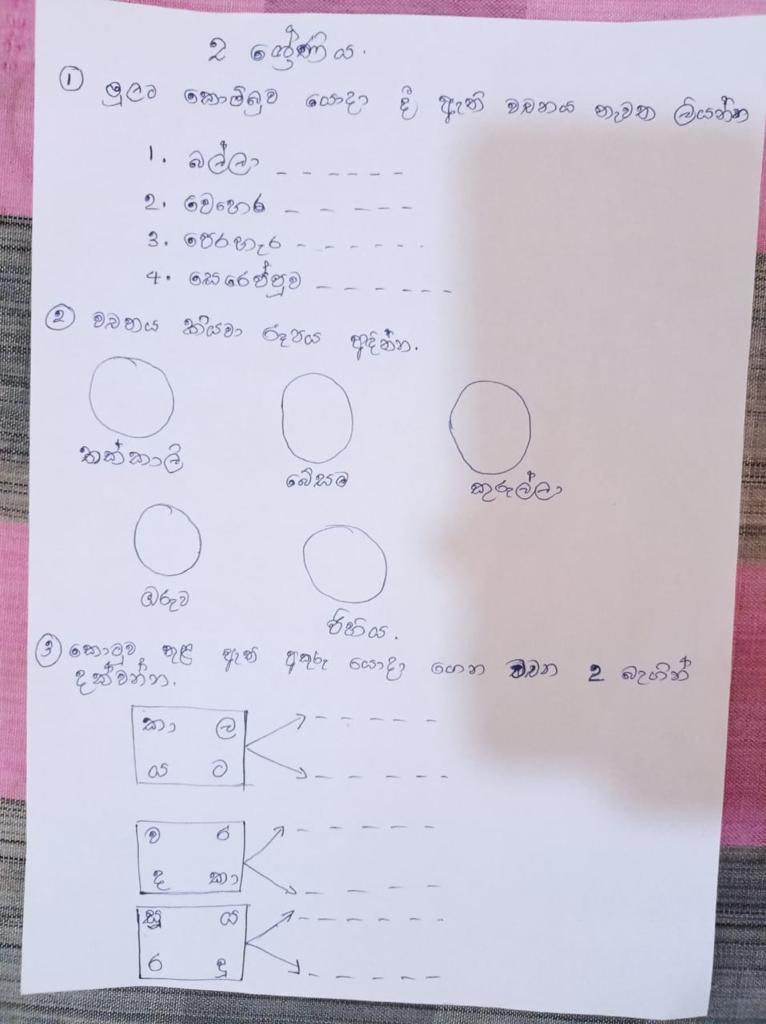 2 ශ්‍රේණිය.
① මුලට කොම්බුව යොදා දී ඇති වචනය නැවත ලියන්න
1. බල්ලා _ _ _ _ _ _
2. වෙහෙර _ _ _ _ _
3. පෙරහැර - - - - - -
4. සෙරෙප්පුව _ _ _ _ _ _
② වචනය කියවා රූපය අඳින්න.
තක්කාලි
බේසම
කුරුල්ලා
ඔරුව
පිහිය.
③ කොටුව තුළ ඇති අකුරු යොදා ගෙන වචන 2 බැගින්
දක්වන්න.
කා ල
ය ට
ව ර
ද කා
සූ ය
ර දු